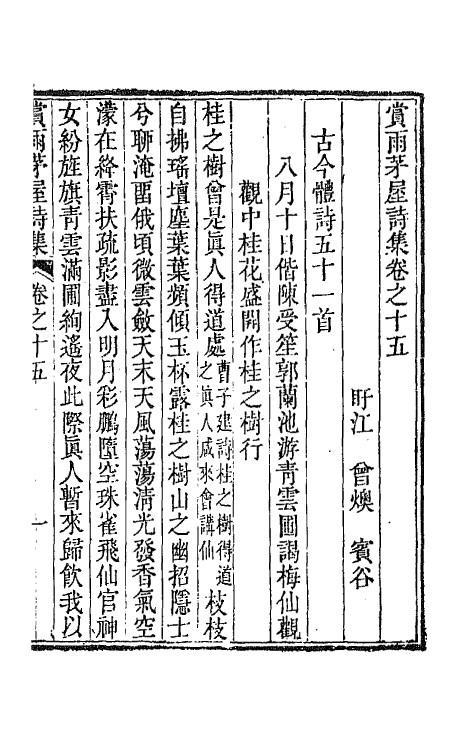 賞雨茅屋詩集卷之十五
盱江 曾燠 賓谷
古今體詩五十一首
八月十日偕陳受笙郭蘭池游青雲圃謁梅仙觀
觀中桂花盛開作桂之樹行
桂之樹曾是眞人得道處曹子建詩桂之樹得道之眞人咸來會講仙枝枝
自拂瑤壇塵葉葉頻傾玉杯露桂之樹山之幽招隱士
兮聊淹畱俄頃微雲斂天末天風蕩蕩淸光發香氣空
濛在絳霄扶疏影盡入明月彩鵬墮空珠雀飛仙官神
女紛旌旗靑雲滿圃絢遙夜此際眞人暫來歸飲我以
賞雨茅屋詩集 卷之十五 一